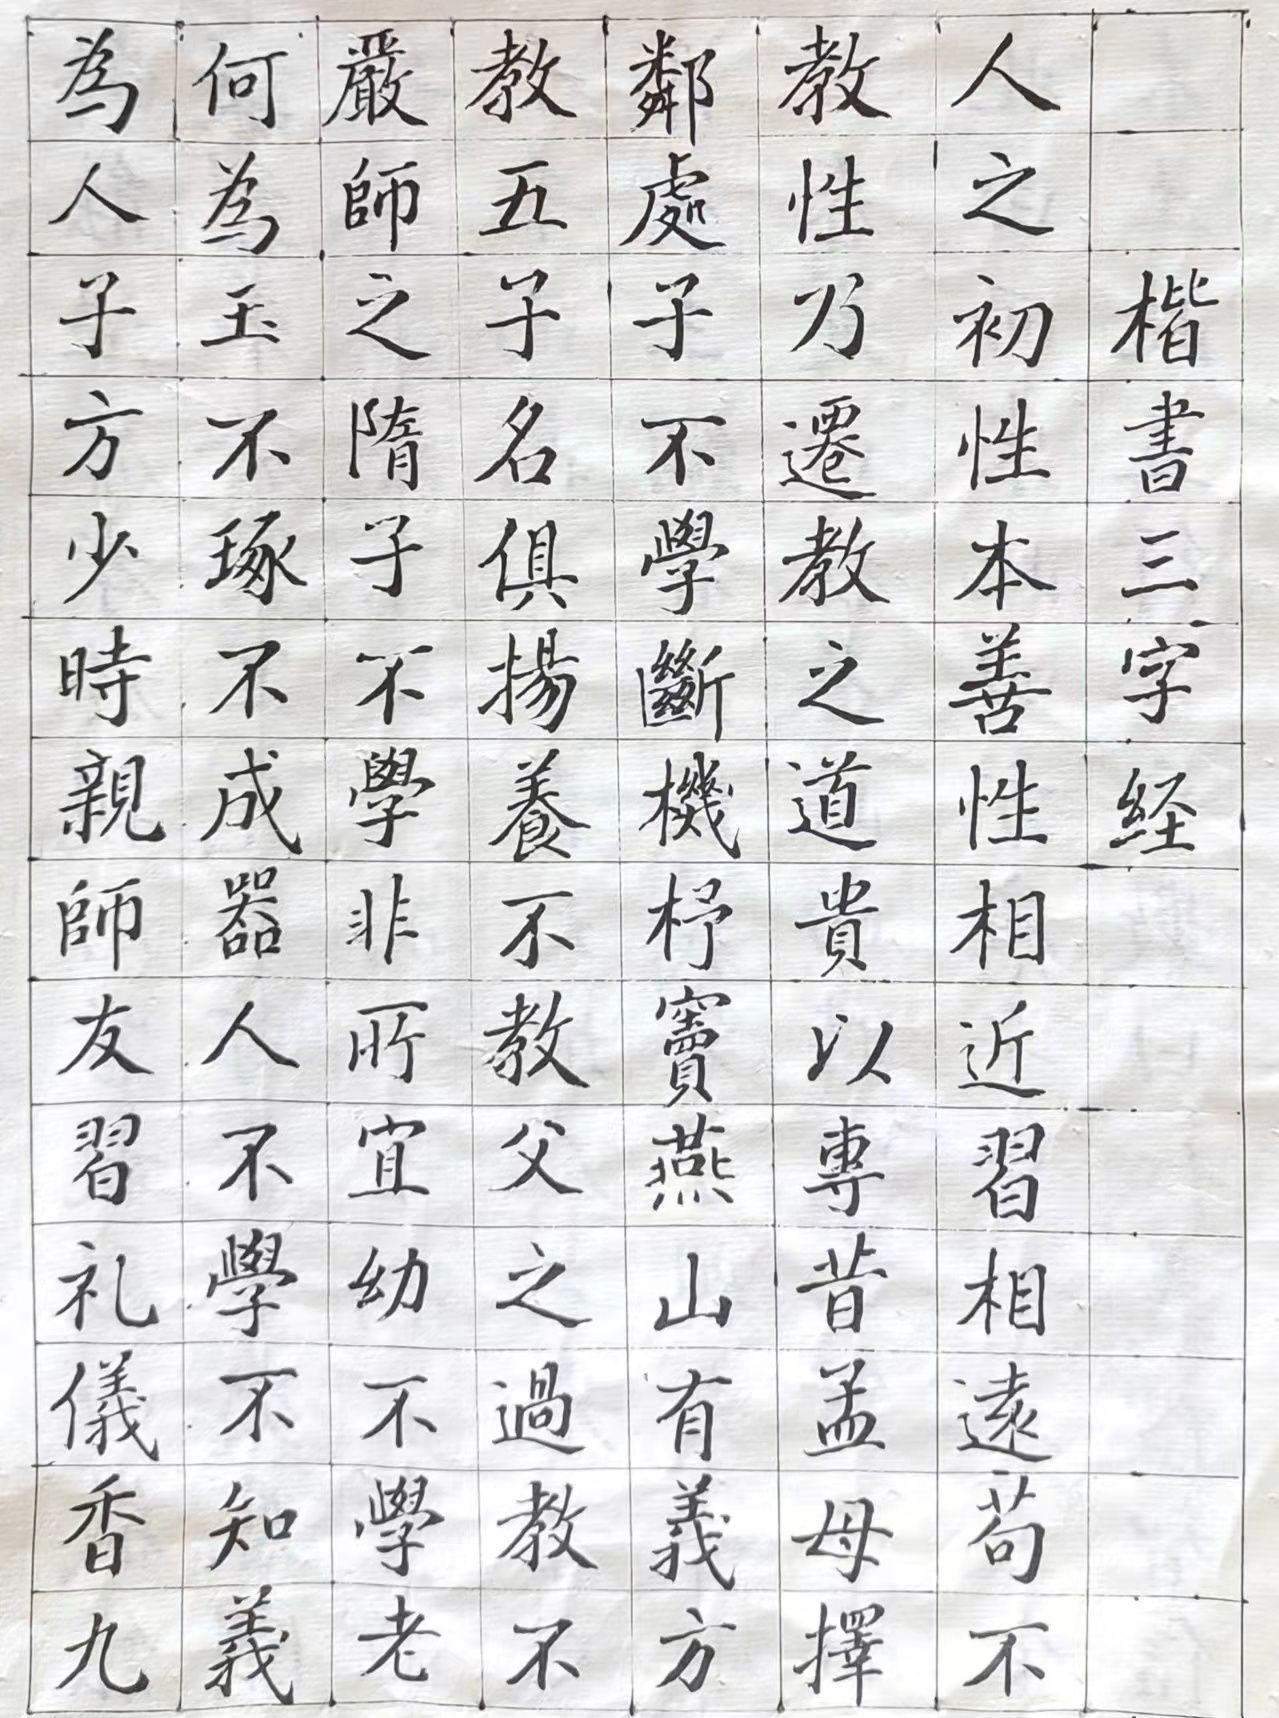 楷書三字経
人之初性本善性相近習相遠苟不
教性乃遷教之道貴以專昔孟母擇
鄰處子不學斷機杼竇燕山有義方
教五子名俱揚養不教父之過教不
嚴師之隋子不學非所宜幼不學老
何為玉不琢不成器人不學不知義
為人子方少時親師友習礼儀香九